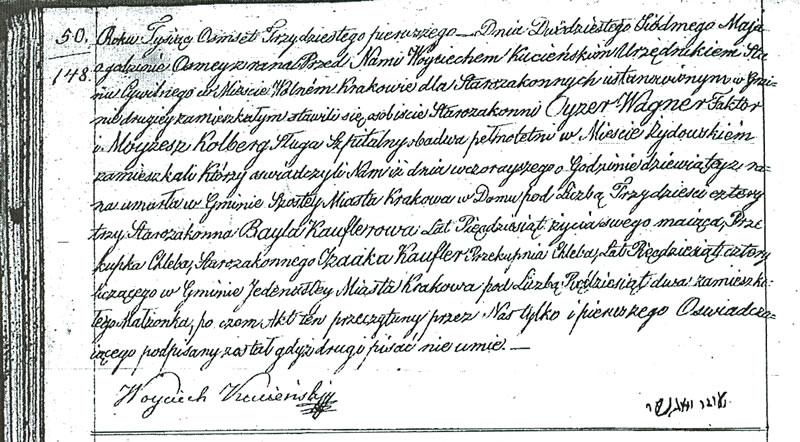 50.
148.
Roku Tysiąc Osmset Trzydziestego pierwszego — Dnia Dwódziestego Siódmego Maja
o godzinie Osmey z rana Przed Nami Woyciechem Kucieńskim Urzędnikiem Sta-
nu Cywilnego w Mieście Wolném Krakowie dla Starozakonnych ustanowionym w Gmi-
nie drugiey zamieszkałym stawili się osobiście Starozakonni Oyzer Wagner Faktor
i Moyżesz Kolberg Sługa Szpitalny obadwa pełnoletni w Mieście Żydowskiem
zamieszkali którzy oswiadczyli Nam iż dnia wczorayszego o Godzinie dziewiątey z ra-
na umarła w Gminie Szostey Miasta Krakowa w Domu pod Liczbą Trzydzieści cztery
trzy Starozakonna Bayla Kauflerowa Lat Pięćdziesiąt życia swego maiąca, Prze-
kupka Chleba, Starozakonnego Izaaka Kaufler Przekupnia Chleba, Lat Pięćdziesiąt cztery
liczącego w Gminie Jedenastey Miasta Krakowa pod Liczbą Pięćdziesiąt dwa zamieszka-
łego Małżonka, po czem Akt ten przeczytany przez Nas tylko i pierwszego Oswiadcza-
iącego podpisany został gdyż drugi pisać nie umie. —
Woyciech Kucieński